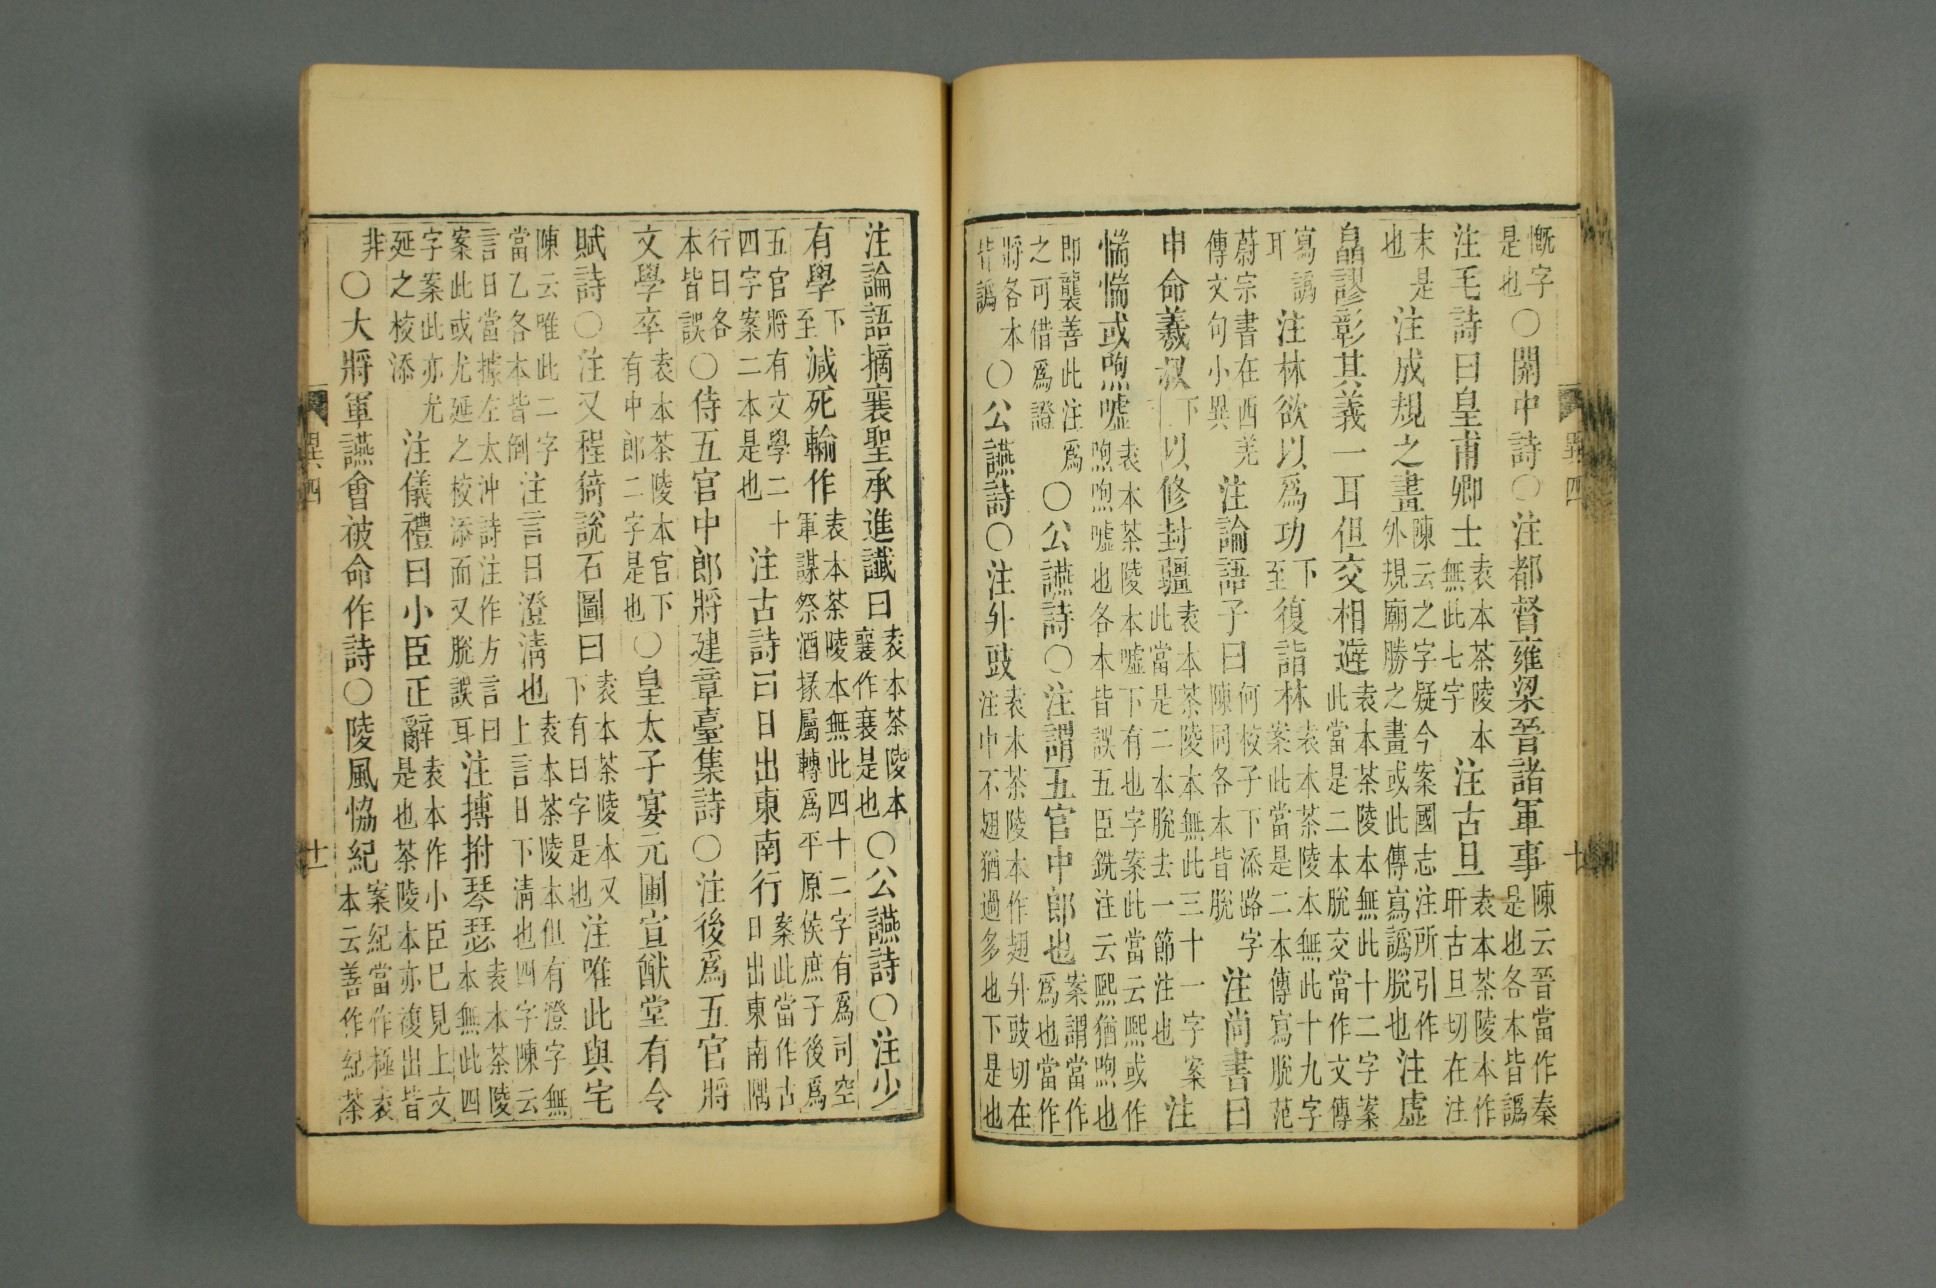 慨字是也○關中詩○注都督雍梁晉諸軍事陳云晉當作秦是也各本皆譌
注毛詩曰皇甫卿士袁本茶陵本無此七字注古旦袁本茶陵本作玕古旦切在注
末是也注成規之畫陳云之字疑今案國志注所引作外規廟勝之畫或此傳寫譌脫也注虛
皛謬彰其義一耳但交相避袁本茶陵本無此十二字案此當是二本脫交當作文傳
寫譌耳注林欲以爲功下至復詣林袁本茶陵本無此十九字案此當是二本傳寫脫范
蔚宗書在西羌傳文句小異注論語子曰何校子下添路字陳同各本皆脫注尚書曰
申命羲叔下以修封疆袁本茶陵本無此三十一字案此當是二本脫去一節注也注
惴惴或喣噓袁本茶陵本噓下有也字案此當云熙或作喣喣噓也各本皆誤五臣銑注云熙猶喣也
即襲善此注爲之可借爲證○公讌詩○注謂五官中郎也案謂當作爲也當作
將各本皆譌○公讌詩○注外豉袁本茶陵本作翅外豉切在注中不翅猶過多也下是也
異四
十
注論語摘襄聖承進讖曰袁本茶陵本襄作衰是也○公讌詩○注少
有學下至減死輸作袁本茶陵本無此四十二字有爲司空軍謀祭酒掾屬轉爲平原侯庶子後爲
五官將有文學二十四字案二本是也注古詩曰日出東南行案此當作古日出東南隅
行曰各本皆誤○侍五官中郎將建章臺集詩○注後爲五官將
文學卒袁本茶陵本官下有中郎二字是也○皇太子宴元圃宣猷堂有令
賦詩○注又程猗說石圖曰袁本茶陵本又下有曰字是也注唯此與宅
陳云唯此二字當乙各本皆倒注言日澄清也袁本茶陵本但有澄字無上言日下清也四字陳云
言日當據左太沖詩注作方言曰案此或尤延之校添而又脫誤耳注搏拊琴瑟袁本茶陵本無此四
字案此亦尤延之校添注儀禮曰小臣正辭袁本作小臣已見上文是也茶陵本亦複出皆
非○大將軍讌會被命作詩○陵風恊紀案紀當作極袁本云善作紀茶
異四
十一